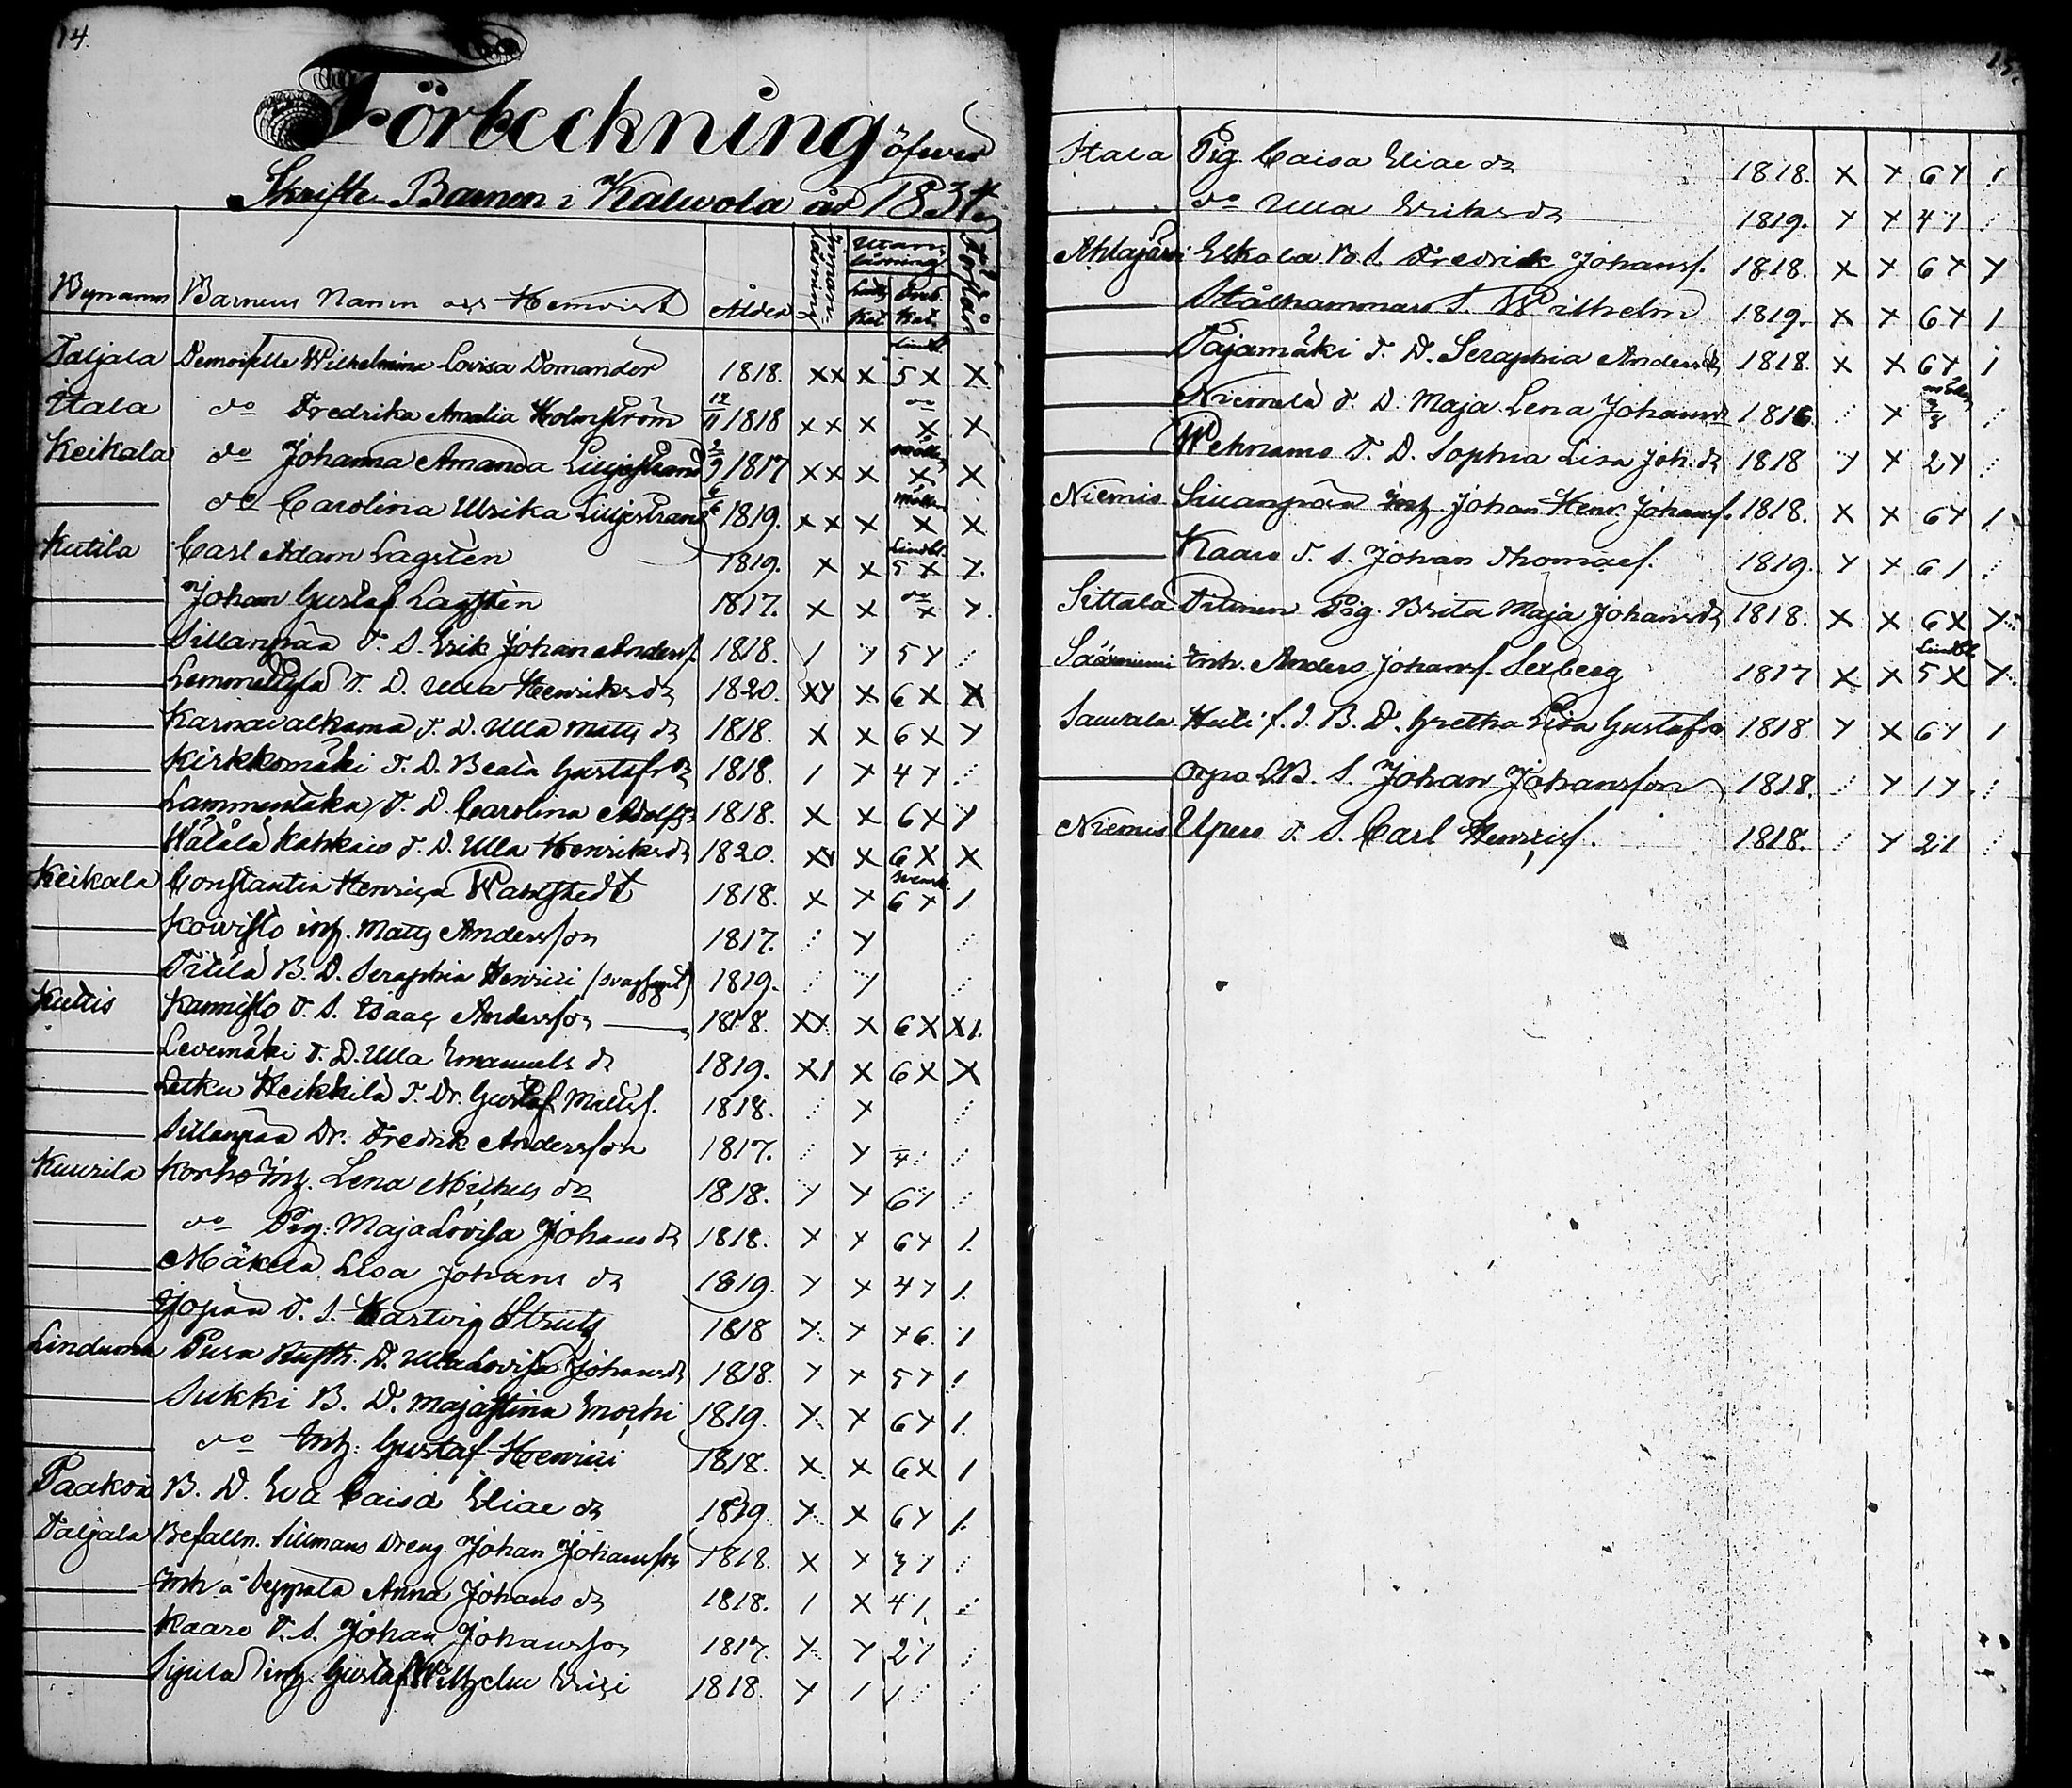 14.
Förteckning öfwer
Skrifte-Barnen i Kalwola år 1834
Bynamn Barnens Namn och Hemvist Ålder Innan-läsning Utan-läsning Luth. Kat. Förstån
Taljala Demoiselle Wilhelmina Lovisa Domander 1818. XX X Lindbl. 5 X X
Itala do Fredrika Amalia Holmström 12/11 1818 XX X do X X
Keikala do Johanna Amanda Liljestrand 2/9 1817 XX X X X
do Carolina Ulrika Liljestrand 1819. XX X X X
Kutila Carl Adam Lagstén 1819. X X Lindbl. 5 X X
Johan Gustaf Lagstén 1817. X X do X X
Sillanpää T. S. Erik Johan Anderss. 1818. 1 X 5 X
Lemmettylä T. D. Ulla Henriksdr 1820. XX X 6 X X
Karnavalkama T. D. Ulla Matts dr 1818. X X 6 X X
Kirkkomäki T. D. Beata Gustafsdr 1818. 1 X 4 X
Lammintaka T. D. Carolina Adolfsdr 1818. X X 6 X X
Kahkaio T. D. Ulla Henriksdr 1820. XX X 6 X X
Keikala Constantia Henrica Wahlstedt 1818. X X 6 X 1
Koivisto inh. Matts Andersson 1817. X
Titilä B. D. Seraphia Henrici 1819.
Kuttis Kannisto T. S. Isaac Andersson 1818. XX X 6 X X1.
Levemäki T. D. Ulla Emanuels dr 1819. X1 X 6 X X
Letku Heikkilä T. Dr. Gustaf Mattss. 1818. X
Sillanpää Dr. Fredrik Andersson 1817. X 4
Kuurila Korho Inh. Lena Michels dr 1818. X X 6 1
do Pig. Maja Lovisa Johans dr 1818. X X 6 X 1.
Mäkelä Lisa Johans dr 1819. X X 4 X 1.
T. S. Hartvig Strutz 1818 X X X 6. 1
Lindunen Pura D. Ulla Lovisa Johansdr 1818. X X 5 X 1
Sukki B. D. Majastina Enochi 1819. X X 6 X 1.
do Inh. Gustaf Henrici 1818. X X 6 X 1
Paakois B. D. Eva Caisa Eliae dr 1819. X X 6 X 1.
Taljala Befalln. Sillmans Dreng Johan Johansson 1818. X X 3 1
Inh. a Seppälä Anna Johans dr 1818. 1 X 4 1.
Kaaro T. S. Johan Johansson 1817. X X 2 1
Sipilä inh. Gustaf Wilhelm Erici 1818. X 1 1
15.
Itala Pig. Caisa Eliae dr 1818. X X 6 X 1
do Ulla Eriks dr 1819. X X 4 1
Ahlajärvi Eskola B. S. Fredrik Johanss. 1818. X X 6 X X
Stålhammars S. Wilhelm 1819. X X 6 X 1
Pajamäki T. D. Seraphia Andersdr 1818. X X 6 X 1
Niemelä T. D. Maja Lena Johansdr 1816. X
Wehnamo T. D. Sophia Lisa Joh. dr 1818 X X 2 X
Niemis Sillanpää Inh. Johan Henr. Johanss. 1818. X X 6 X 1
Kaaro T. S. Johan Thomaes. 1819. X X 6 1
Sittala Pig. Brita Maja Johansdr 1818. X X 6 X X
Sääxniemi Inh. Anders Johanss. Sexberg 1817 X X Lindbl. 5 X X
Sauvala Huli B. D. Gretha Lisa Gustafsdr 1818 X X 6 X 1
S. Johan Johansson 1818. X 1 X
Niemis Upero T. S. Carl Henrics. 1818. X 2 1